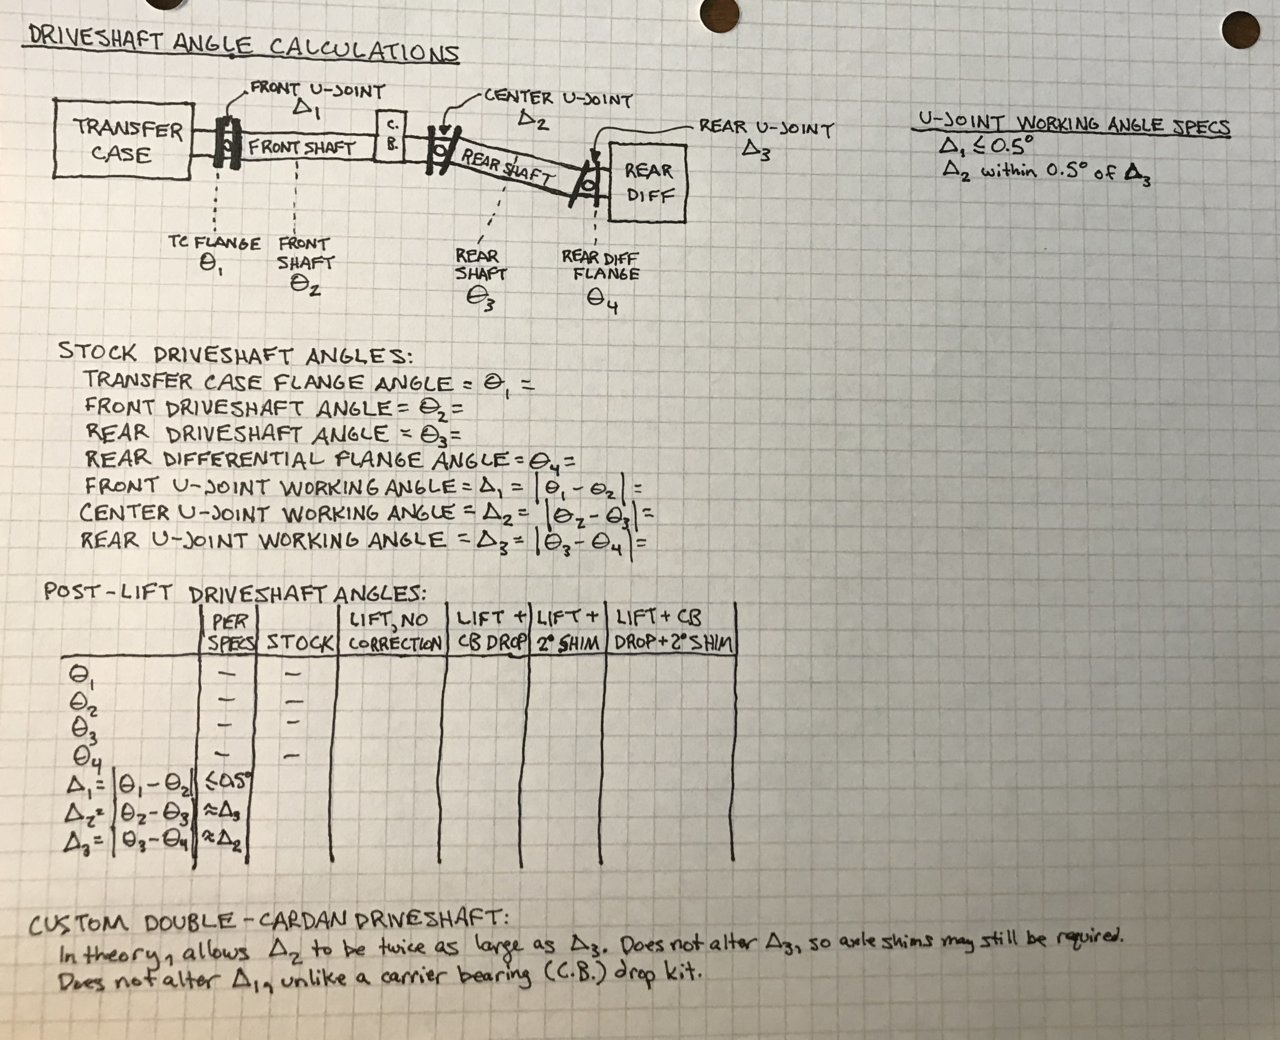 DRIVESHAFT ANGLE CALCULATIONS
FRONT U-JOINT
Δ₁
CENTER U-JOINT
Δ₂
REAR U-JOINT
Δ₃
U-JOINT WORKING ANGLE SPECS
Δ₁ ≤ 0.5°
Δ₂ within 0.5° of Δ₃
TRANSFER
CASE
FRONT SHAFT
C.
B.
REAR SHAFT
REAR
DIFF
TC FLANGE
θ₁
FRONT
SHAFT
θ₂
REAR
SHAFT
θ₃
REAR DIFF
FLANGE
θ₄
STOCK DRIVESHAFT ANGLES:
TRANSFER CASE FLANGE ANGLE = θ₁ =
FRONT DRIVESHAFT ANGLE = θ₂ =
REAR DRIVESHAFT ANGLE = θ₃ =
REAR DIFFERENTIAL FLANGE ANGLE = θ₄ =
FRONT U-JOINT WORKING ANGLE = Δ₁ = |θ₁ - θ₂| =
CENTER U-JOINT WORKING ANGLE = Δ₂ = |θ₂ - θ₃| =
REAR U-JOINT WORKING ANGLE = Δ₃ = |θ₃ - θ₄| =
POST-LIFT DRIVESHAFT ANGLES:
PER SPECS | STOCK | LIFT, NO CORRECTION | LIFT + CB DROP | LIFT + 2° SHIM | LIFT + CB DROP + 2° SHIM
θ₁ – –
θ₂ – –
θ₃ – –
θ₄ – –
Δ₁ = |θ₁ - θ₂| ≤0.5°
Δ₂ = |θ₂ - θ₃| ≈Δ₃
Δ₃ = |θ₃ - θ₄| ≈Δ₂
CUSTOM DOUBLE-CARDAN DRIVESHAFT:
In theory, allows Δ₂ to be twice as large as Δ₃. Does not alter Δ₃, so axle shims may still be required.
Does not alter Δ₁, unlike a carrier bearing (C.B.) drop kit.